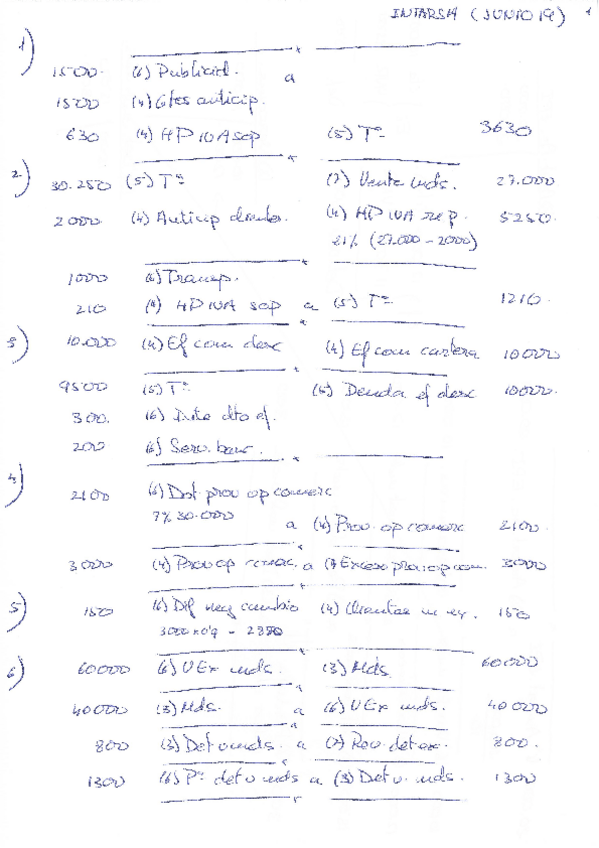 INTARSA (JUNIO 19) 1
1)
1500 (6) Publicid. a
1500 (4) Gtos anticip.
630 (4) HP IVA sop (5) Tª 3630
2)
30.250 (5) Tª (7) Venta mds. 27.000
2000 (4) Anticip clientes. (4) HP IVA rep. 5250.
21% (27.000 - 2000)
1000 (6) Transp.
210 (4) HP IVA sop a (5) Tª 1210.
3)
10.000 (4) Ef com desc (4) Ef com cartera 10000
9500 (5) Tª (5) Deuda ef desc 10000.
300. (6) Inte dto ef.
200 (6) Serv. banc.
4)
2100 (6) Dot prov op comerc
7% 30.000
a (4) Prov. op comerc 2100.
3000 (4) Prov op comerc. a (7) Exceso prov op com. 3000
5)
150 (6) Dif neg cambio (4) Clientes m ex. 150
6)
60000 (6) VEx mds. (3) Mds. 60000
40000 (3) Mds. a (6) VEx mds. 40000
800 (3) Det v mds. a (7) Rev. det ex. 800.
1300 (6) Pª det v mds a (3) Det v. mds. 1300